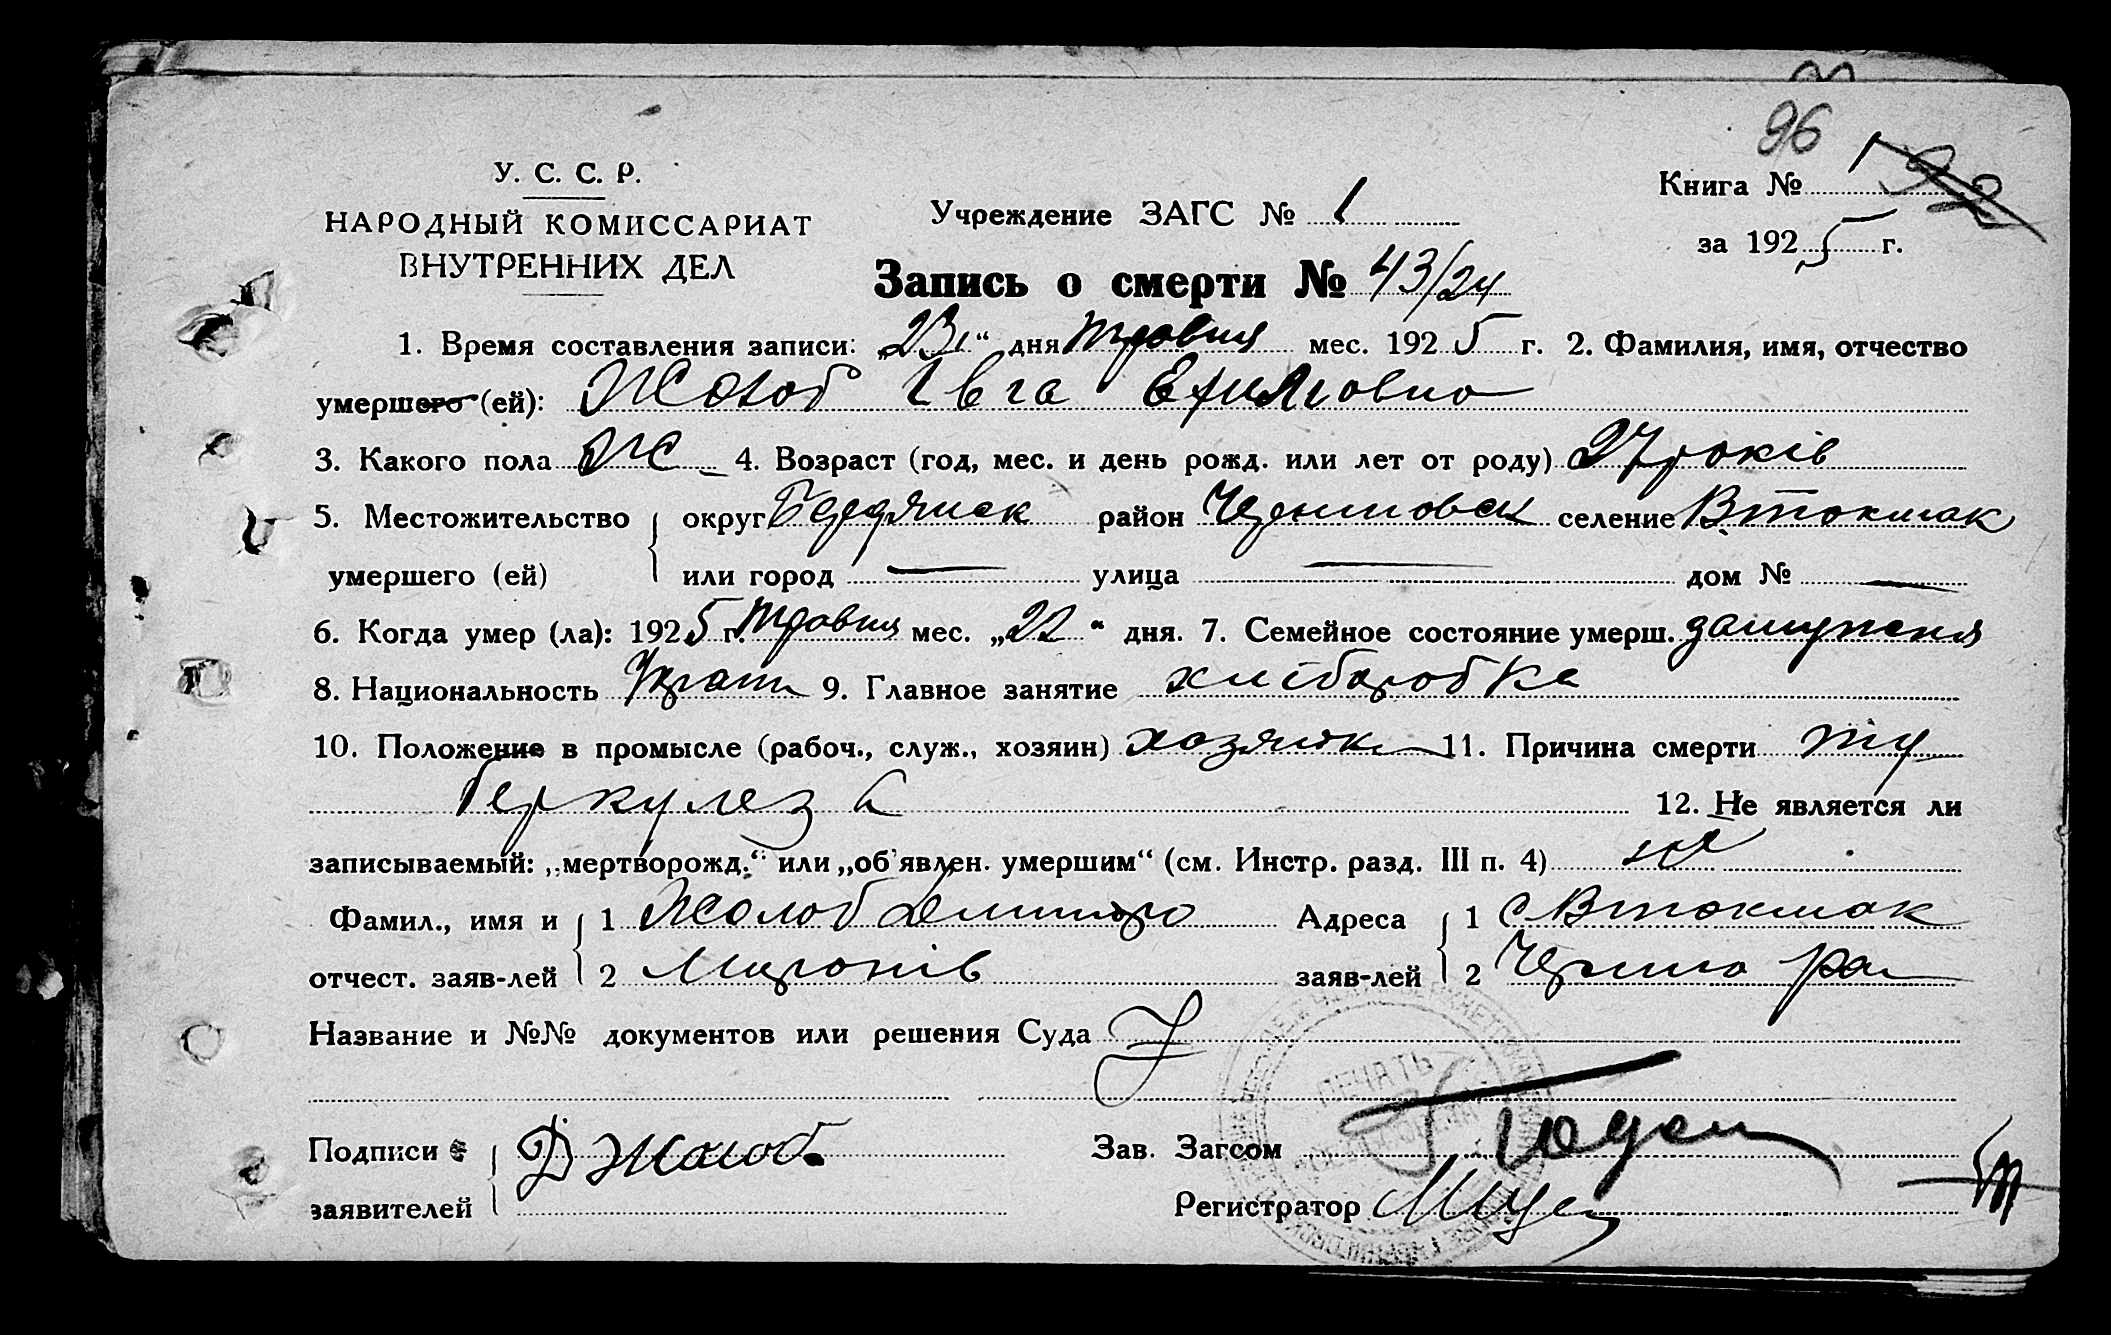 96
У. С. С. Р.
НАРОДНЫЙ КОМИССАРИАТ
ВНУТРЕННИХ ДЕЛ
Учреждение ЗАГС № 1
Книга № 1
за 1925 г.
Запись о смерти № 43/24
1. Время составления записи: „23“ дня травня мес. 1925 г. 2. Фамилия, имя, отчество
умершего (ей): Жолоб Івга Ефимовна
3. Какого пола Ж 4. Возраст (год, мес. и день рожд. или лет от роду) 27 років
5. Местожительство округ Бердянск район Черниговск селение В. Токмак
умершего (ей) или город — улица — дом № —
6. Когда умер (ла): 1925 г. травня мес. „22“ дня. 7. Семейное состояние умерш. замужня
8. Национальность Украін 9. Главное занятие хліборобка
10. Положение в промысле (рабоч., служ., хозяин) хозяйка 11. Причина смерти ту
беркулез 12. Не является ли
записываемый: „мертворожд.“ или „об'явлен. умершим“ (см. Инстр. разд. III п. 4) ні
Фамил., имя и 1 Жолоб Дмитро Адреса 1 с Втокмак
отчест. заяв-лей 2 Миронів заяв-лей 2 Черниг рай
Название и №№ документов или решения Суда
ПЕЧАТЬ
Подписи Д Жолоб. Зав. Загсом
заявителей Регистратор